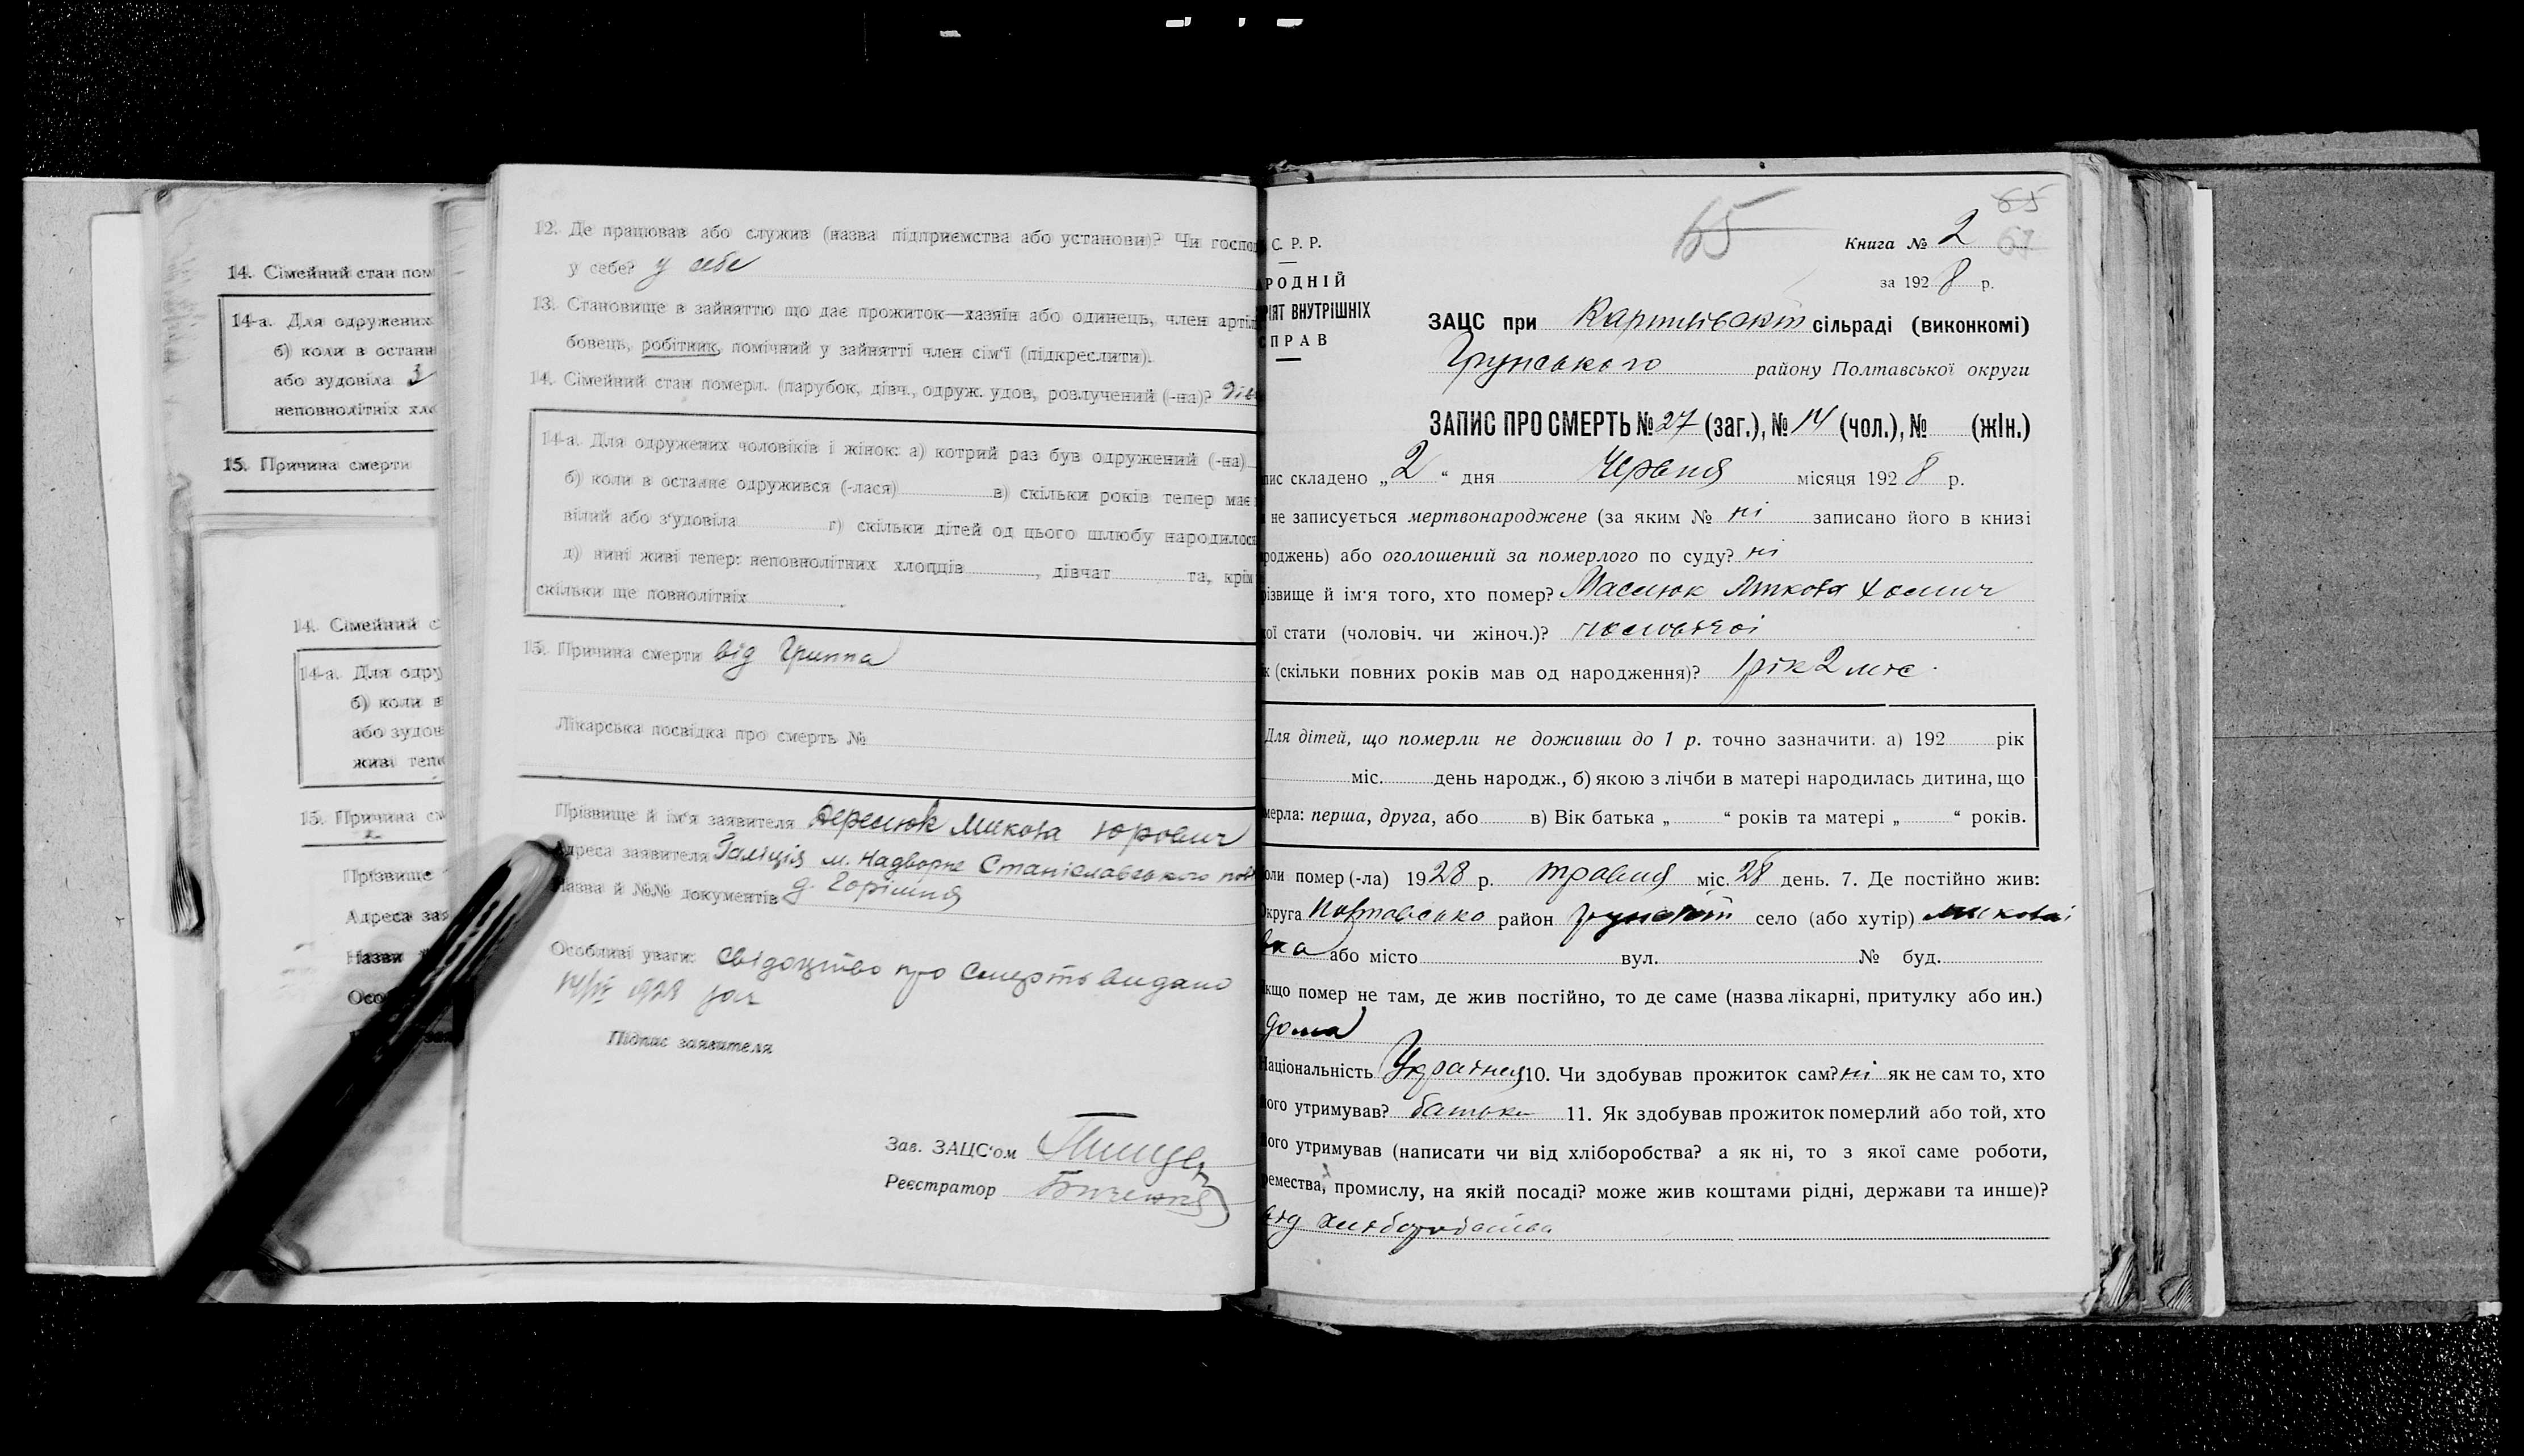 14. Сімейний стан пом
14-а. Для одружених
б) коли в останн
або зудовіла
неповнолітніх хло
15. Причина смерти
14. Сімейний с
14-а. Для одру
б) коли в
або зудов
живі тепе
15. Причина см
Прізвище
Адреса зая
Назви
Осо
12. Де працював або служив (назва підприємства або установи)? Чи госпо
у себе? у себе
13. Становище в зайняттю що дає прожиток—хазяїн або одинець, член артіл
бовець, робітник, помічний у зайнятті член сім'ї (підкреслити).
14. Сімейний стан померл. (парубок, дівч., одруж. удов, розлучений (-на)?
14-а. Для одружених чоловіків і жінок: а) котрий раз був одружений (-на)
б) коли в останнє одружився (-лася) в) скільки років тепер має
вілий або з'удовіла г) скільки дітей од цього шлюбу народилося
д) нині живі тепер: неповнолітніх хлопців , дівчат та, крім
скільки ще повнолітніх .
15. Причина смерти від Гриппа
Лікарська посвідка про смерть №
Прізвище й ім'я заявителя Юрович
Адреса заявителя Галіція м. Надворне Станіславського пов
Назва й №№ документів д. Горішня
Особливі уваги: Свідоцтво про Смерть видано
1928
Підпис заявителя
Зав. ЗАЦС'ом
Реєстратор
65
65
Книга № 2
С. Р. Р.
РОДНІЙ
РІЯТ ВНУТРІШНІХ
СПРАВ
за 1928 р.
ЗАЦС при сільраді (виконкомі)
Грунського району Полтавської округи
ЗАПИС ПРО СМЕРТЬ № 27 (заг.), № 14 (чол.), № (жін.)
пис складено „2“ дня Червня місяця 1928 р.
не записується мертвонароджене (за яким № ні записано його в книзі
роджень) або оголошений за померлого по суду? ні
різвище й ім'я того, хто помер? Микола Хомич
кої стати (чоловіч. чи жіноч.)? чоловічої
к (скільки повних років мав од народження)? 1 рік 2 міс.
Для дітей, що померли не доживши до 1 р. точно зазначити: а) 192 рік
міс. день народж., б) якою з лічби в матері народилась дитина, що
мерла: перша, друга, або в) Вік батька „ “ років та матері „ “ років.
оли помер (-ла) 1928 р. травня міс. 28 день. 7. Де постійно жив:
Округа Полтавсько район Грунський село (або хутір) Миколаї
вка або місто вул. № буд.
кщо помер не там, де жив постійно, то де саме (назва лікарні, притулку або ин.)
дома
Національність 10. Чи здобував прожиток сам? ні як не сам то, хто
його утримував? батько 11. Як здобував прожиток померлий або той, хто
його утримував (написати чи від хліборобства? а як ні, то з якої саме роботи,
ремества, промислу, на якій посаді? може жив коштами рідні, держави та инше)?
від хліборобства